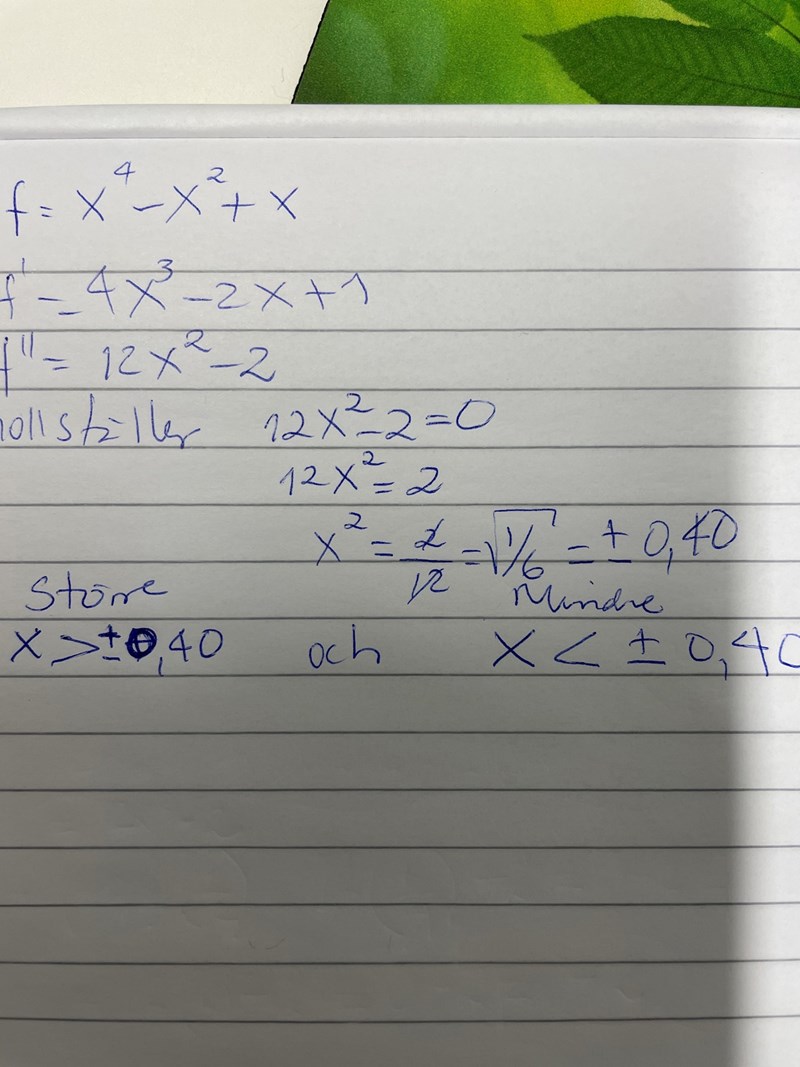 f = x⁴ - x² + x
f' = 4x³ - 2x + 1
f'' = 12x² - 2
nollställer 12x² - 2 = 0
12x² = 2
x² = 2/12 = √1/6 = ± 0,40
Större Mindre
x > ± 0,40 och x < ± 0,40